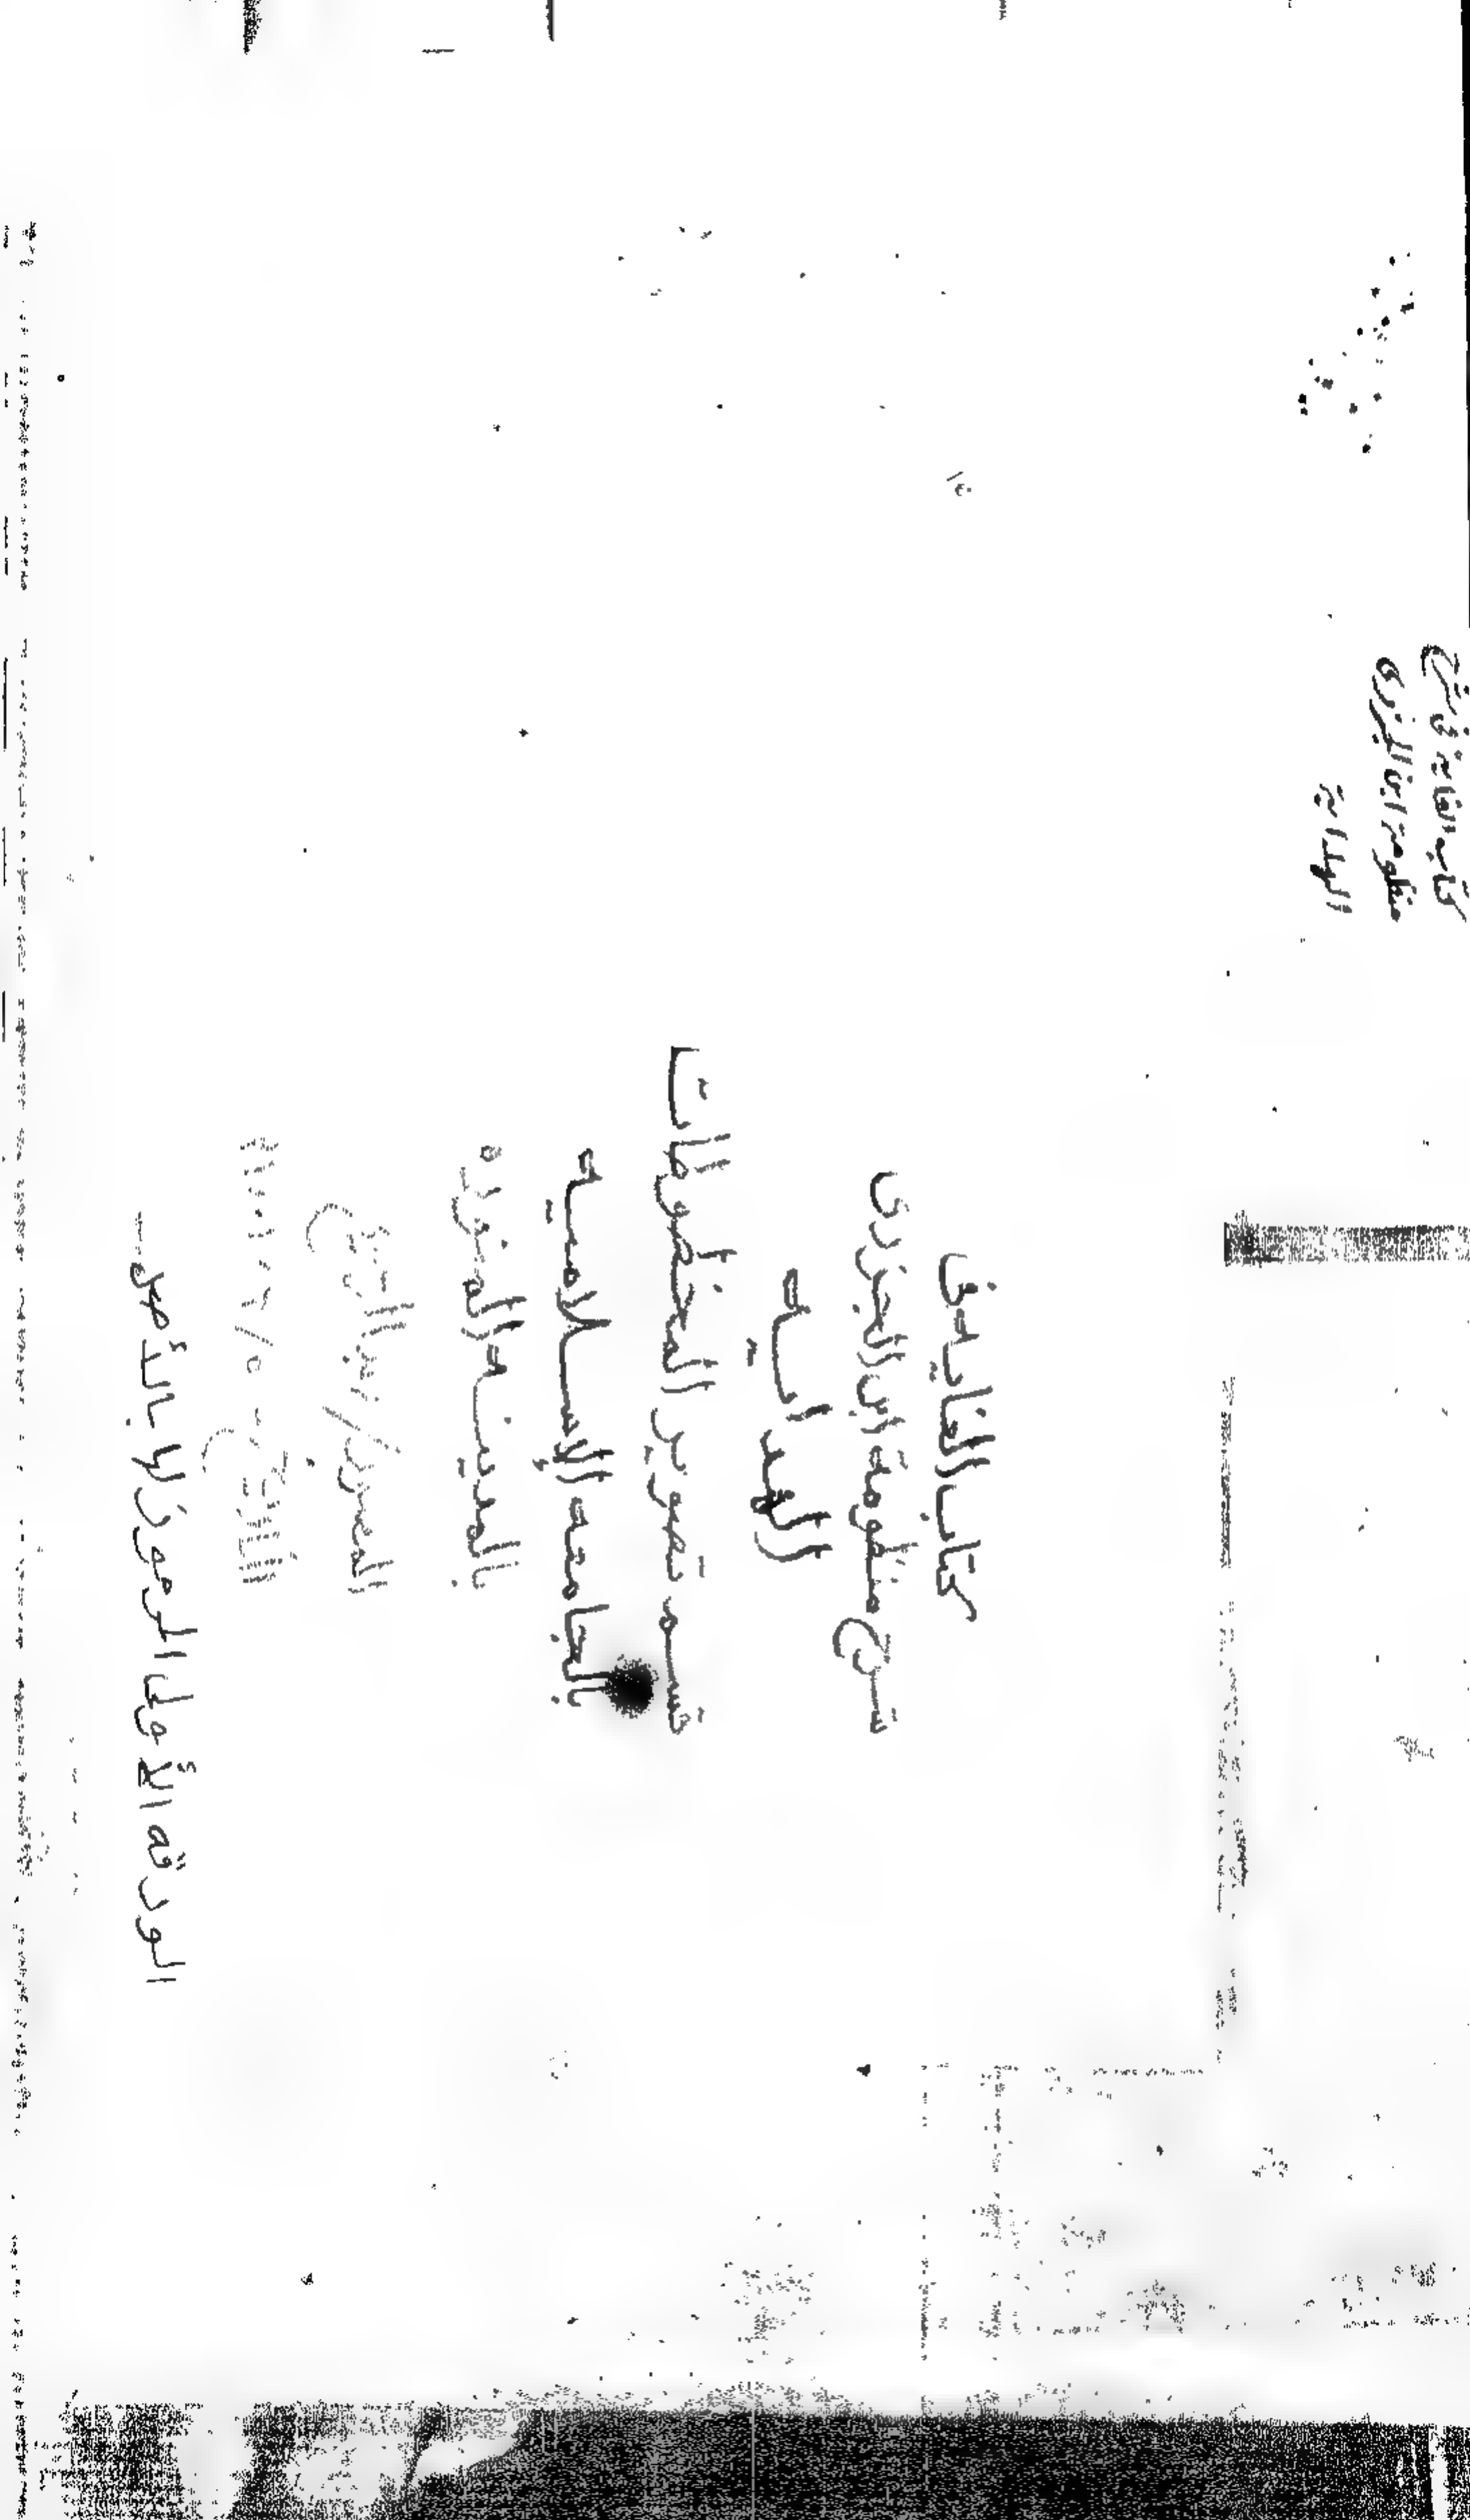 كتاب الغاية في شرح
منظومة ابن الجزرى
الهداية
كتاب الغايه فى
شرح منظومة ابن الجزرى
الهدايه
قسم تصوير المخطوطات
بالجامعه الإسلاميه
بالمدينه المنوره
المصور /
التاريخ
الورقه الأولى الموجود لها بالأصل